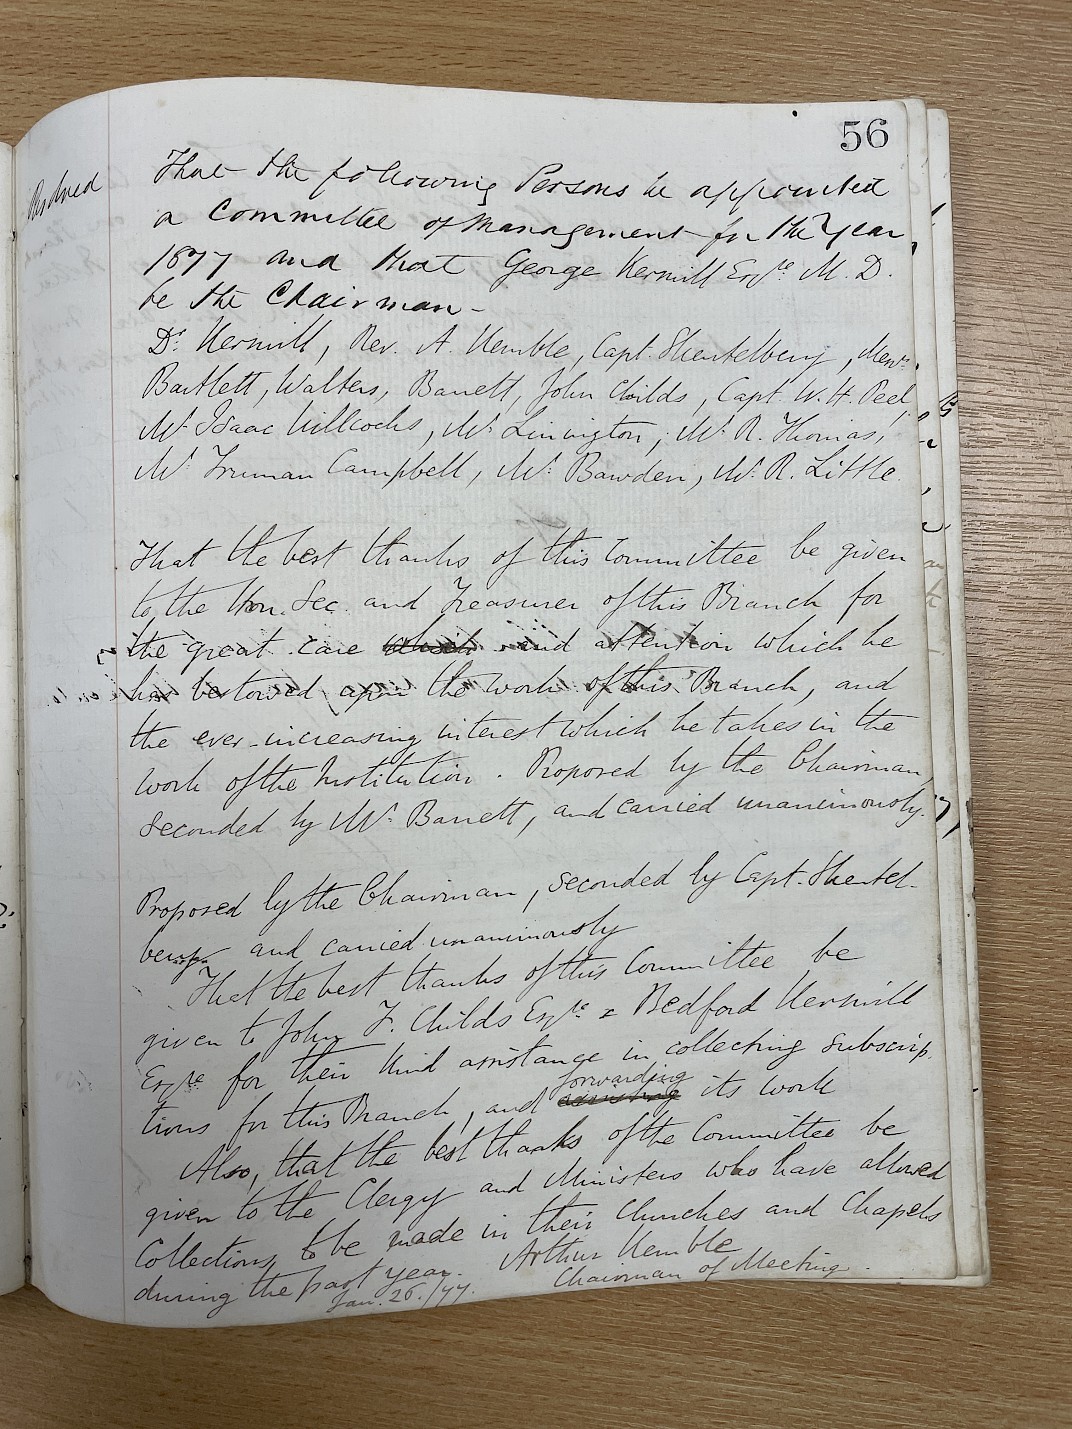 56
Resolved
That the following Persons be appointed
a Committee of Management for the Year
1877 and that George Kerswill Esqre M. D.
be the Chairman -
Dr. Kerswill, Rev. A. Kemble, Capt. Shentelbury, Messrs
Bartlett, Walters, Barrett, John Childs, Capt. W. H. Peel,
Mr. Isaac Willcocks, Mr. Linington, Mr. R. Thomas,
Mr. Truman Campbell, Mr. Bawden, Mr. R. Little.
That the best thanks of this Committee be given
to the Hon. Sec. and Treasurer of this Branch for
the great care which and attention which he
has bestowed upon the work of this Branch, and
the ever-increasing interest which he takes in the
work of the Institution. Proposed by the Chairman,
seconded by Mr. Barrett, and carried unanimously.
Proposed by the Chairman, seconded by Capt. Shentel-
bery and carried unanimously
That the best thanks of this Committee be
given to John F. Childs Esqre & Bedford Kerswill
Esqre for their kind assistance in collecting subscrip-
tions for this Branch, and forwarding its work
Also, that the best thanks of the Committee be
given to the Clergy and Ministers who have allowed
Collections to be made in their Churches and Chapels
during the past year. Arthur Kemble
Jan. 26. /77. Chairman of Meeting.